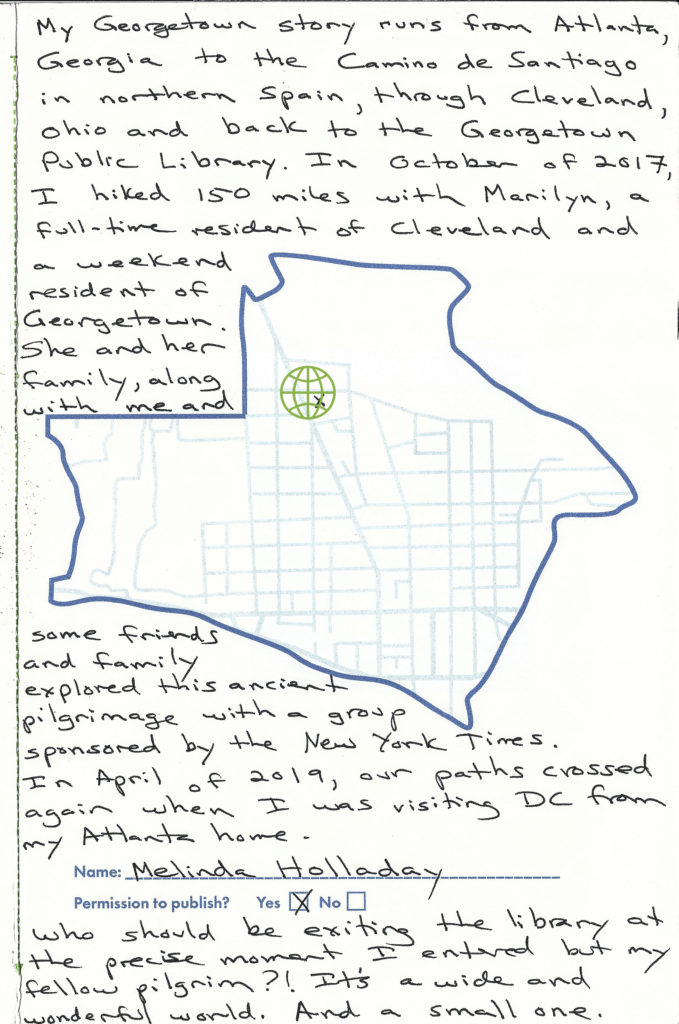 My Georgetown story runs from Atlanta,
Georgia to the Camino de Santiago
in northern Spain, through Cleveland,
Ohio and back to the Georgetown
Public Library. In October of 2017,
I hiked 150 miles with Marilyn, a
full-time resident of Cleveland and
a weekend
resident of
Georgetown.
She and her
family, along
with me and
x
some friends
and family
explored this ancient
pilgrimage with a group
sponsored by the New York Times.
In April of 2019, our paths crossed
again when I was visiting DC from
my Atlanta home.
Name: Melinda Holladay
Permission to publish? Yes X No
Who should be exiting the library at
the precise moment I entered but my
fellow pilgrim?! It's a wide and
wonderful world. And a small one.